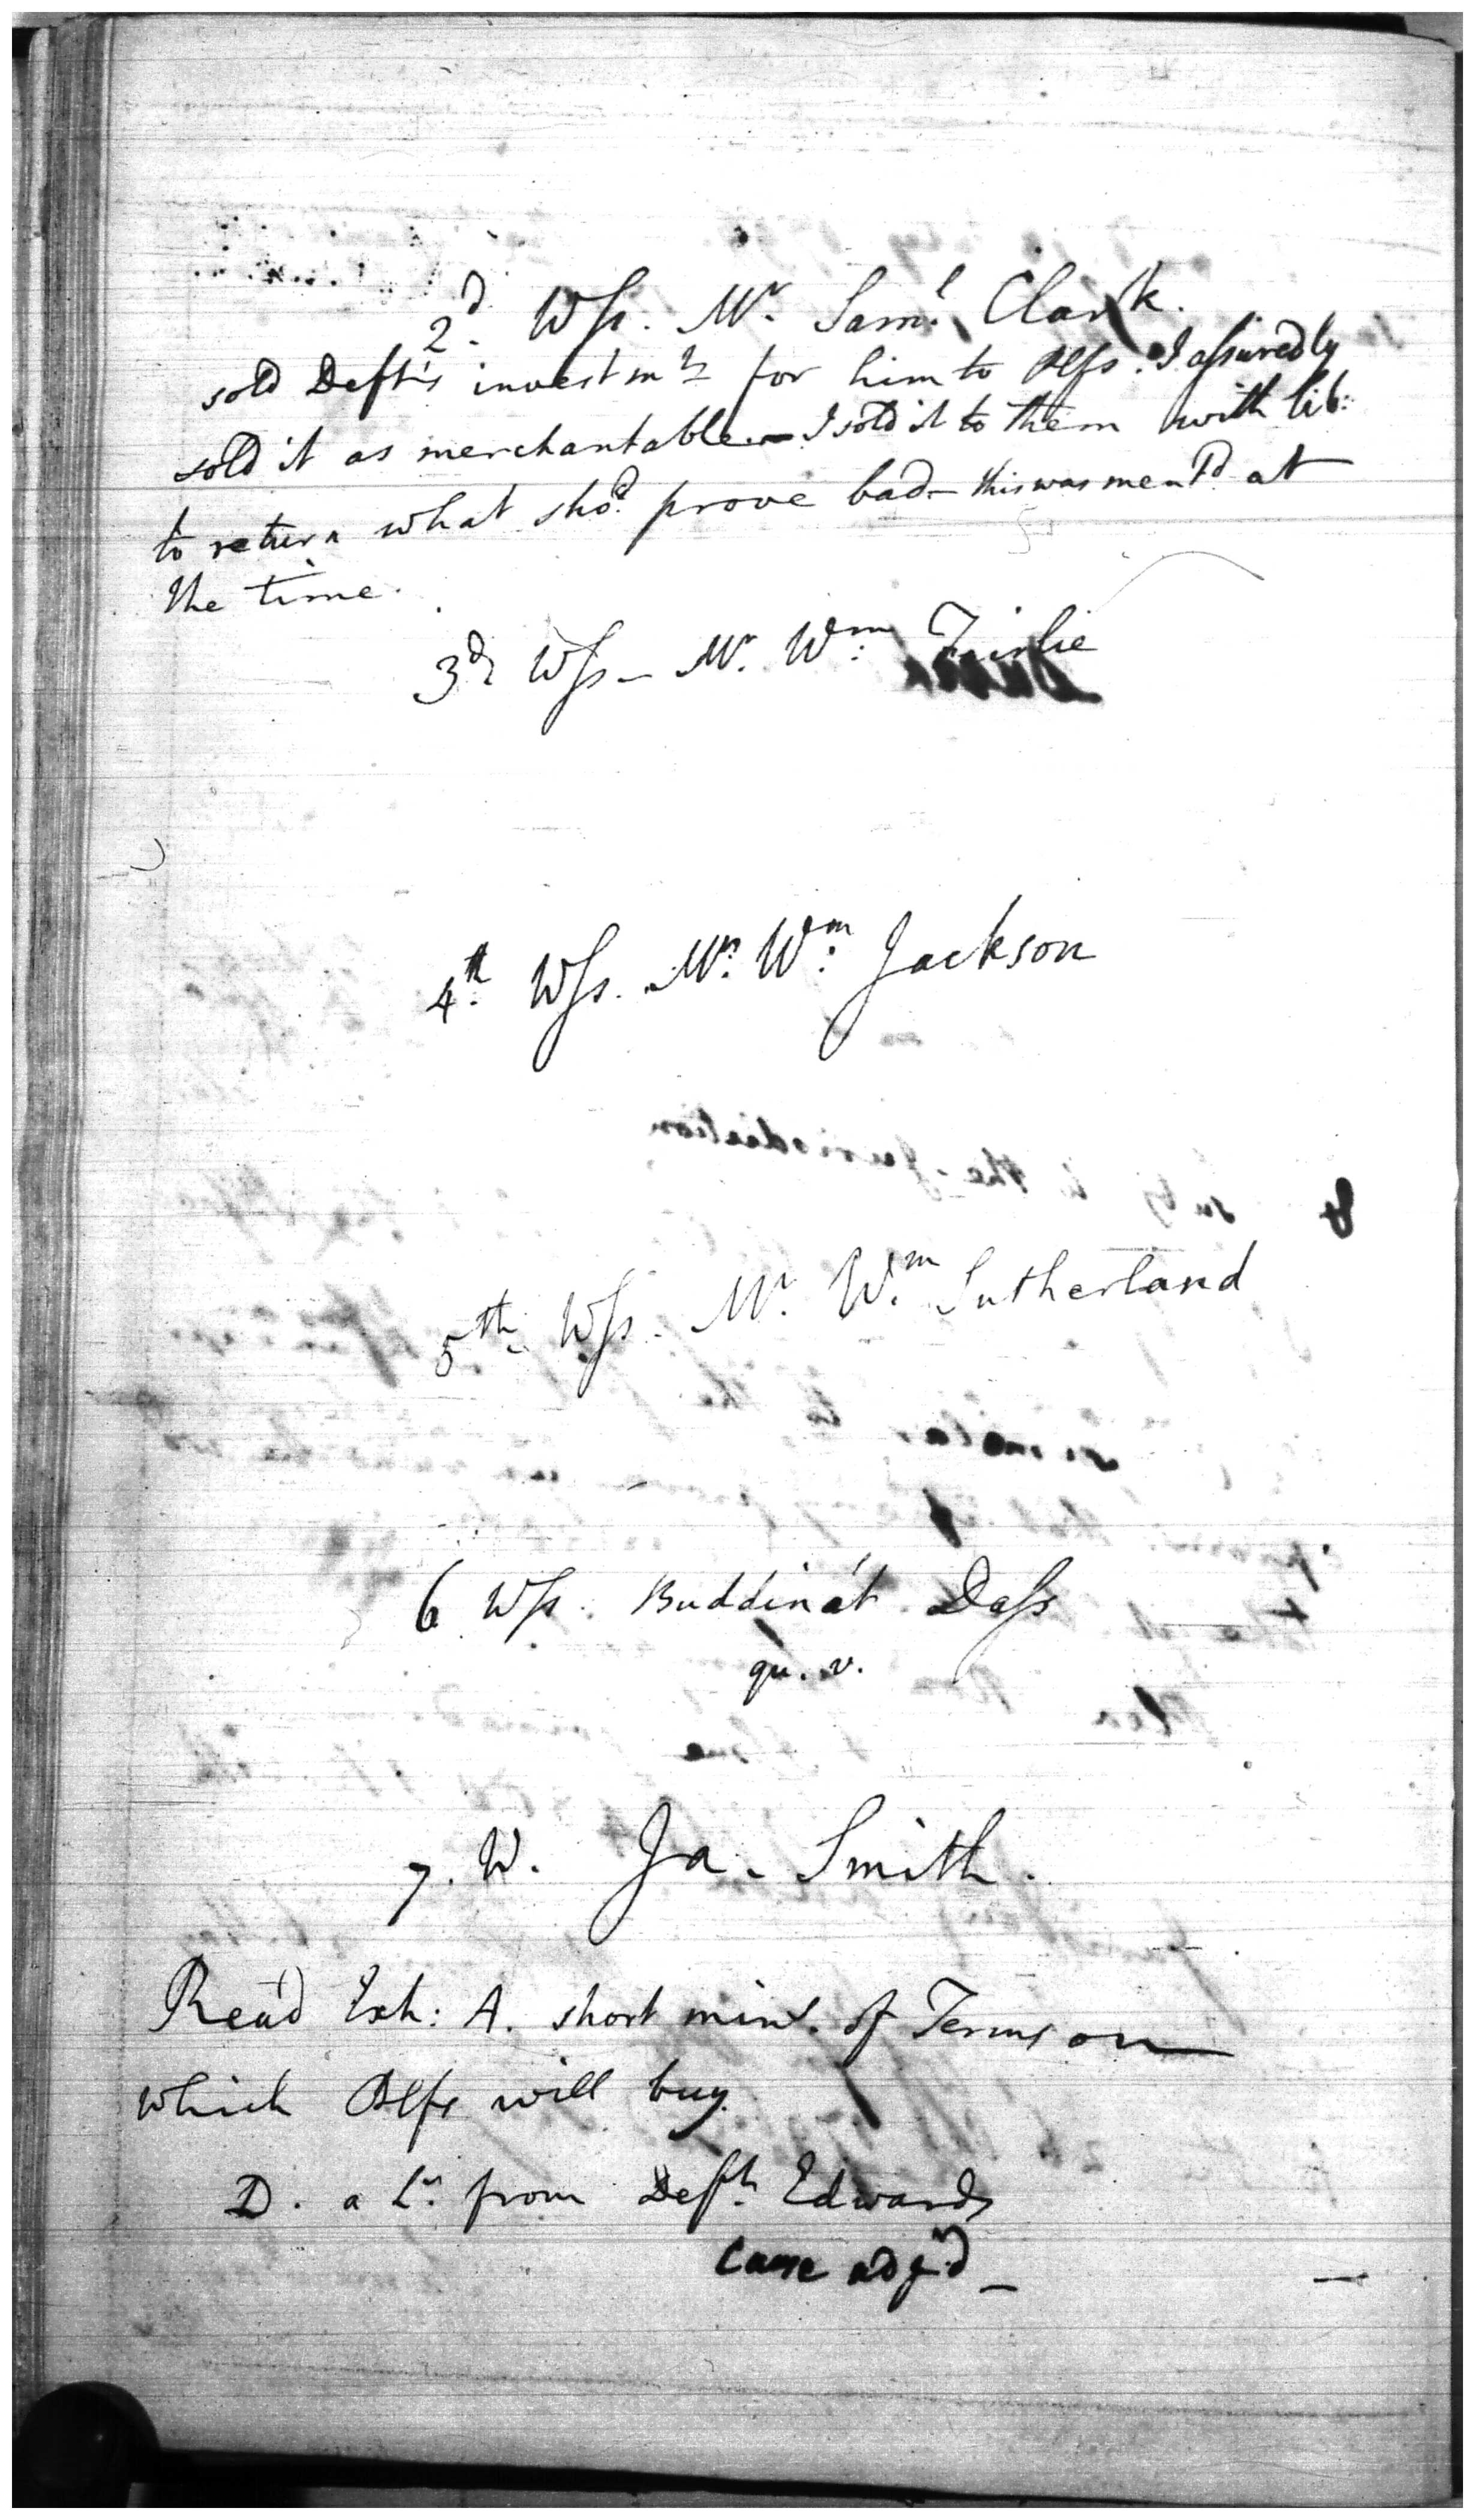 2d. Wss. Mr. Saml. Clark.
sold Deft's investmts for him to Plfs. I assuredly
sold it as merchantable – I sold it to them with lib:
to return what shod. prove bad – this was ment'd at
the time.
3d Wss – Mr. Wm: Fairlie
4th. Wss. Mr. Wm: Jackson
5th Wss. Mr. Wm. Sutherland
6 Wss. Buddinát Dass
qu. v.
7. W. Ja. Smith.
Read Exh: A. short mint. of Terms on
which Plfs will buy.
D. a Lr. from Deft. Edwards
Cause adjd –